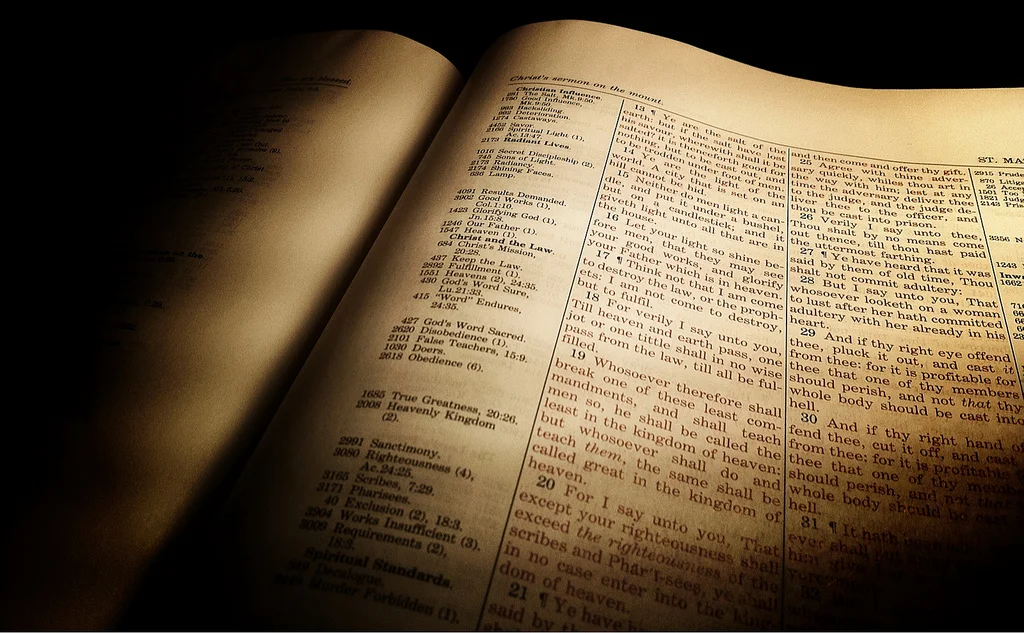 Christ's sermon on the mount.
ST. MA
Christian Influence.
291 The Salt, Mk.9:50.
1780 Good Influence,
Mk.9:50.
993 Backsliding.
992 Deterioration.
1274 Castaways.
4452 Savor.
2166 Spiritual Light (1),
Ac.13:47.
2173 Radiant Lives.
1016 Secret Discipleship (2).
745 Sons of Light.
2173 Radiancy.
2174 Shining Faces.
636 Lamp.
4091 Results Demanded.
3902 Good Works (1),
Col.1:10.
1423 Glorifying God (1),
Jn.15:8.
1246 Our Father (1).
1547 Heaven (1).
Christ and the Law.
684 Christ's Mission,
20:28.
437 Keep the Law.
2892 Fulfillment (1).
1551 Heavens (2), 24:35.
430 God's Word Sure,
Lu.21:33.
415 "Word" Endures,
24:35.
427 God's Word Sacred.
2620 Disobedience (1).
2101 False Teachers, 15:9.
1030 Doers.
2618 Obedience (6).
1685 True Greatness, 20:26.
2008 Heavenly Kingdom
(2).
2991 Sanctimony.
3080 Righteousness (4),
Ac.24:25.
3165 Scribes, 7:29.
3171 Pharisees.
40 Exclusion (2), 18:3.
3904 Works Insufficient (3).
3008 Requirements (2),
18:3.
Spiritual Standards.
Decalogue.
Murder Forbidden (1).
13 ¶ Ye are the salt of the
earth: but if the salt have lost
his savour, wherewith shall it be
salted? it is thenceforth good for
nothing, but to be cast out, and
to be trodden under foot of men.
14 Ye are the light of the
world. A city that is set on an
hill cannot be hid.
15 Neither do men light a can-
dle, and put it under a bushel,
but on a candlestick; and it
giveth light unto all that are in
the house.
16 Let your light so shine be-
fore men, that they may see
your good works, and glorify
your Father which is in heaven.
17 ¶ Think not that I am come
to destroy the law, or the proph-
ets: I am not come to destroy,
but to fulfil.
18 For verily I say unto you,
Till heaven and earth pass, one
jot or one tittle shall in no wise
pass from the law, till all be ful-
filled.
19 Whosoever therefore shall
break one of these least com-
mandments, and shall teach
men so, he shall be called the
least in the kingdom of heaven:
but whosoever shall do and
teach them, the same shall be
called great in the kingdom of
heaven.
20 For I say unto you, That
except your righteousness shall
exceed the righteousness of the
scribes and Phar'i-sees, ye shall
in no case enter into the king-
dom of heaven.
21 ¶ Ye have
said by
and then come and offer thy gift.
25 Agree with thine adver-
sary quickly, whiles thou art in
the way with him; lest at any
time the adversary deliver thee
to the judge, and the judge de-
liver thee to the officer, and
thou be cast into prison.
26 Verily I say unto thee,
Thou shalt by no means come
out thence, till thou hast paid
the uttermost farthing.
27 ¶ Ye have heard that it was
said by them of old time, Thou
shalt not commit adultery:
28 But I say unto you, That
whosoever looketh on a woman
to lust after her hath committed
adultery with her already in his
heart.
29 And if thy right eye offend
thee, pluck it out, and cast it
from thee: for it is profitable for
thee that one of thy members
should perish, and not that thy
whole body should be cast into
hell.
30 And if thy right hand of
fend thee, cut it off, and cast
from thee: for it is profitable
thee that one of thy
should perish, and not that
whole body should be cast
hell.
31 ¶ It hath
ever shall
32
2915
870
26
1501 Too
1821
2145
3356
1243
1662